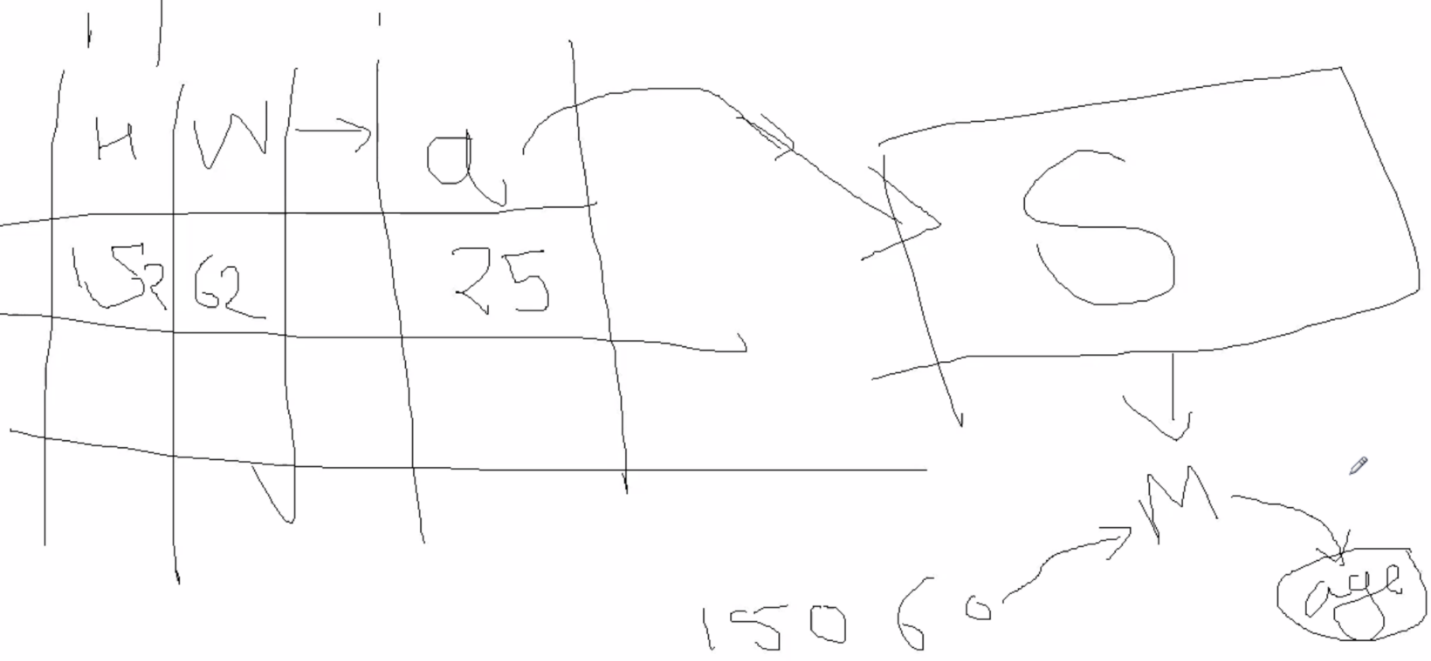 H W → a
152 62 25
S
M
150 60
age